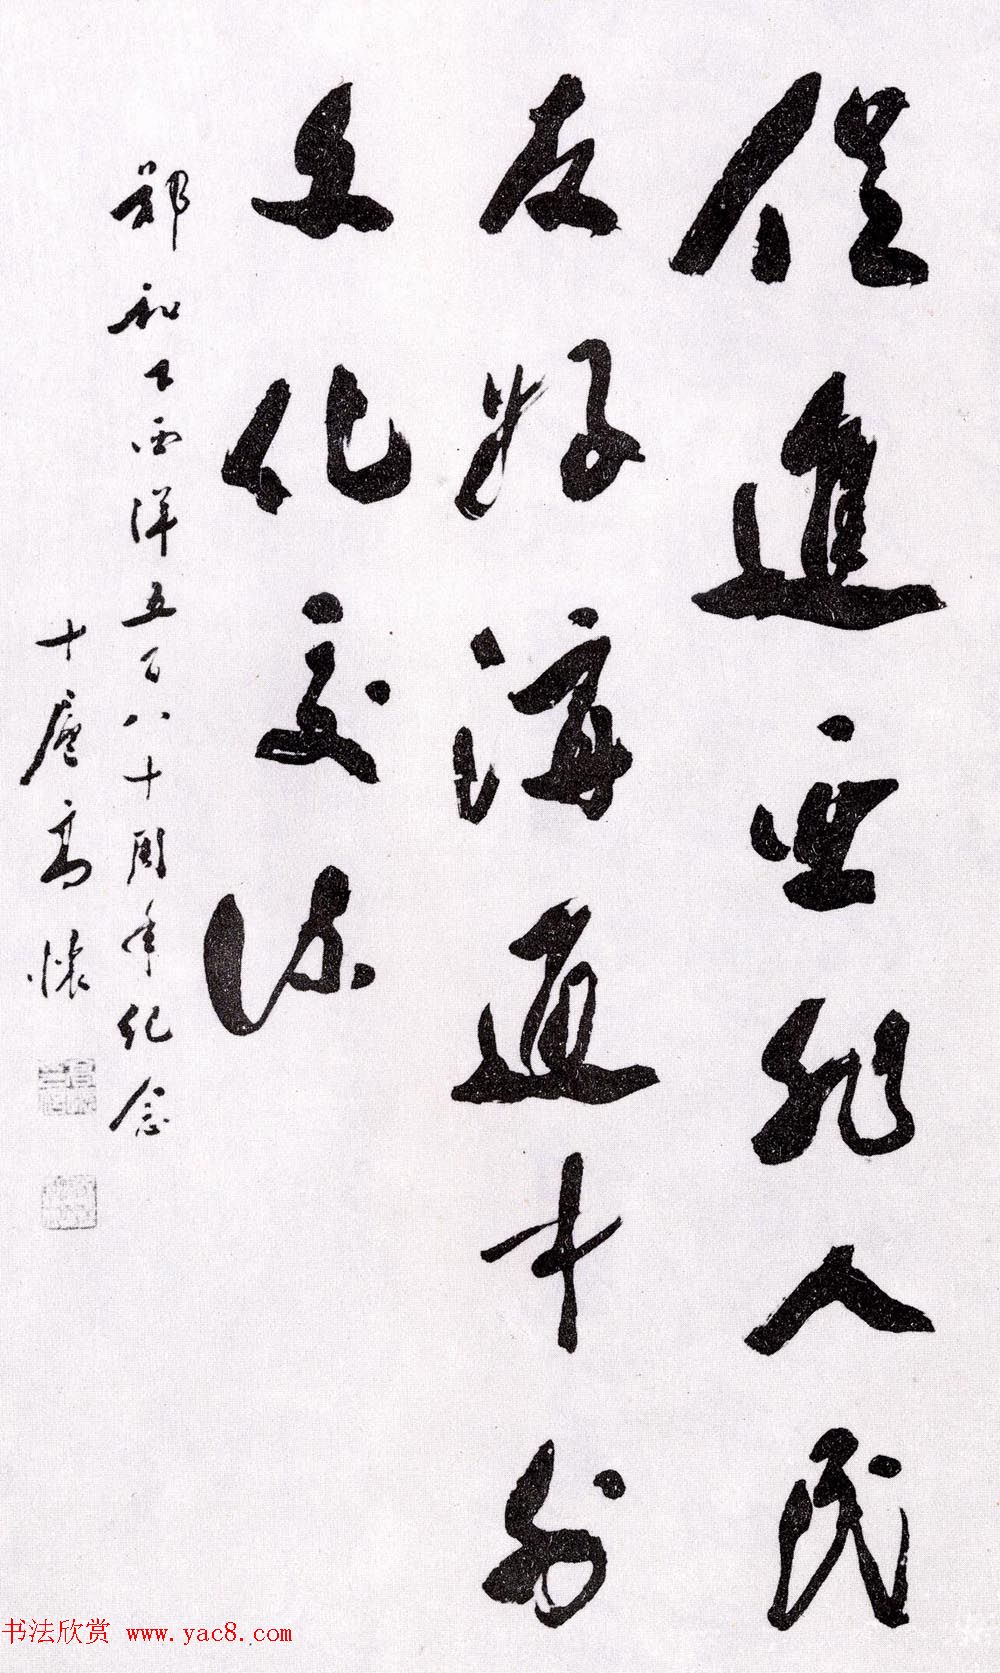 促進亞非人民
友好溝通中外
文化交流
郑和下西洋五百八十周年纪念
十廬高懷
书法欣赏 www.yac8.com